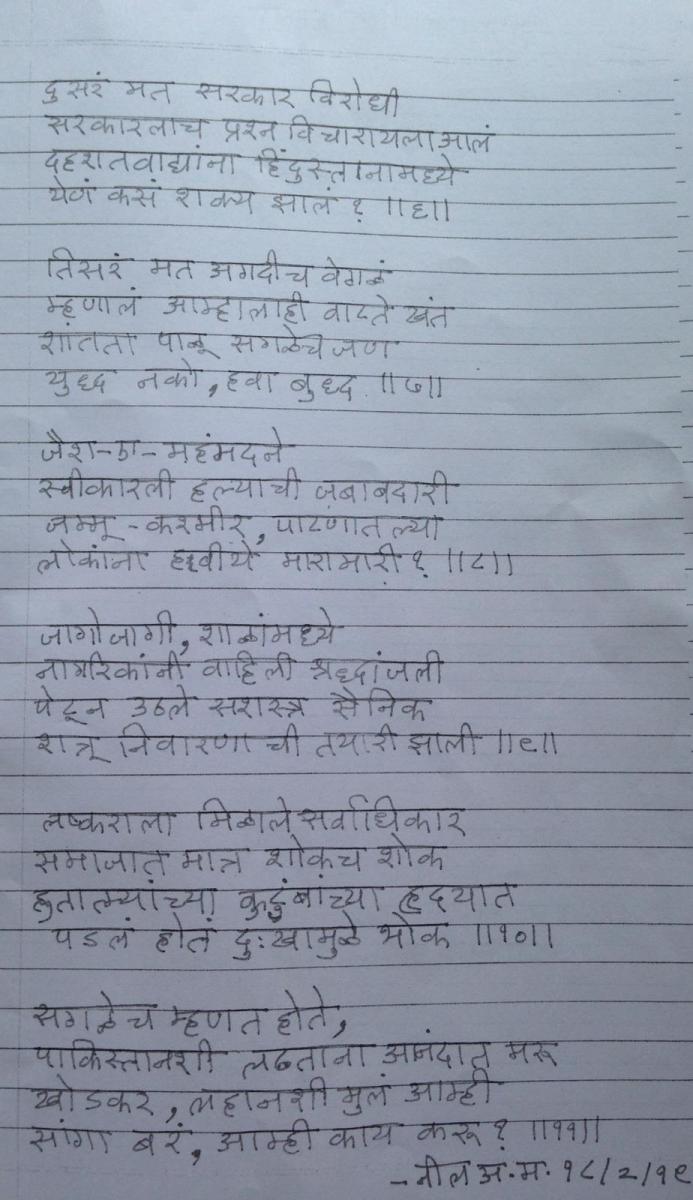 दुसरं मत सरकार विरोधी
सरकारलाच प्रश्न विचारायला आलं
दहशतवाद्यांना हिंदुस्तानामध्ये
येणं कसं शक्य झालं ? ॥६॥
तिसरं मत अगदीच वेगळं
म्हणालं आम्हालाही वाटते खंत
शांतता पाळू सगळेच जण
युध्द नको, हवा बुध्द ॥७॥
जैश-ए-महंमदने
स्वीकारली हल्याची जबाबदारी
जम्मू-कश्मीर, पाटणातल्या
लोकांना हवीये मारामारी ? ॥८॥
जागोजागी, शाळांमध्ये
नागरिकांनी वाहिली श्रध्दांजली
पेटून उठले सशस्त्र सैनिक
शत्रू निवारणाची तयारी झाली ॥९॥
लष्कराला मिळाले सर्वाधिकार
समाजात मात्र शोकच शोक
हुतात्म्यांच्या कुटुंबांच्या हृदयात
पडलं होतं दुःखामुळे भोक ॥१०॥
सगळेच म्हणत होते,
पाकिस्तानशी लढताना आनंदात मरू
खोडकर, लहानशी मुलं आम्ही
सांगा बरं, आम्ही काय करू ? ॥११॥
- नील अ. म. १८/२/१९